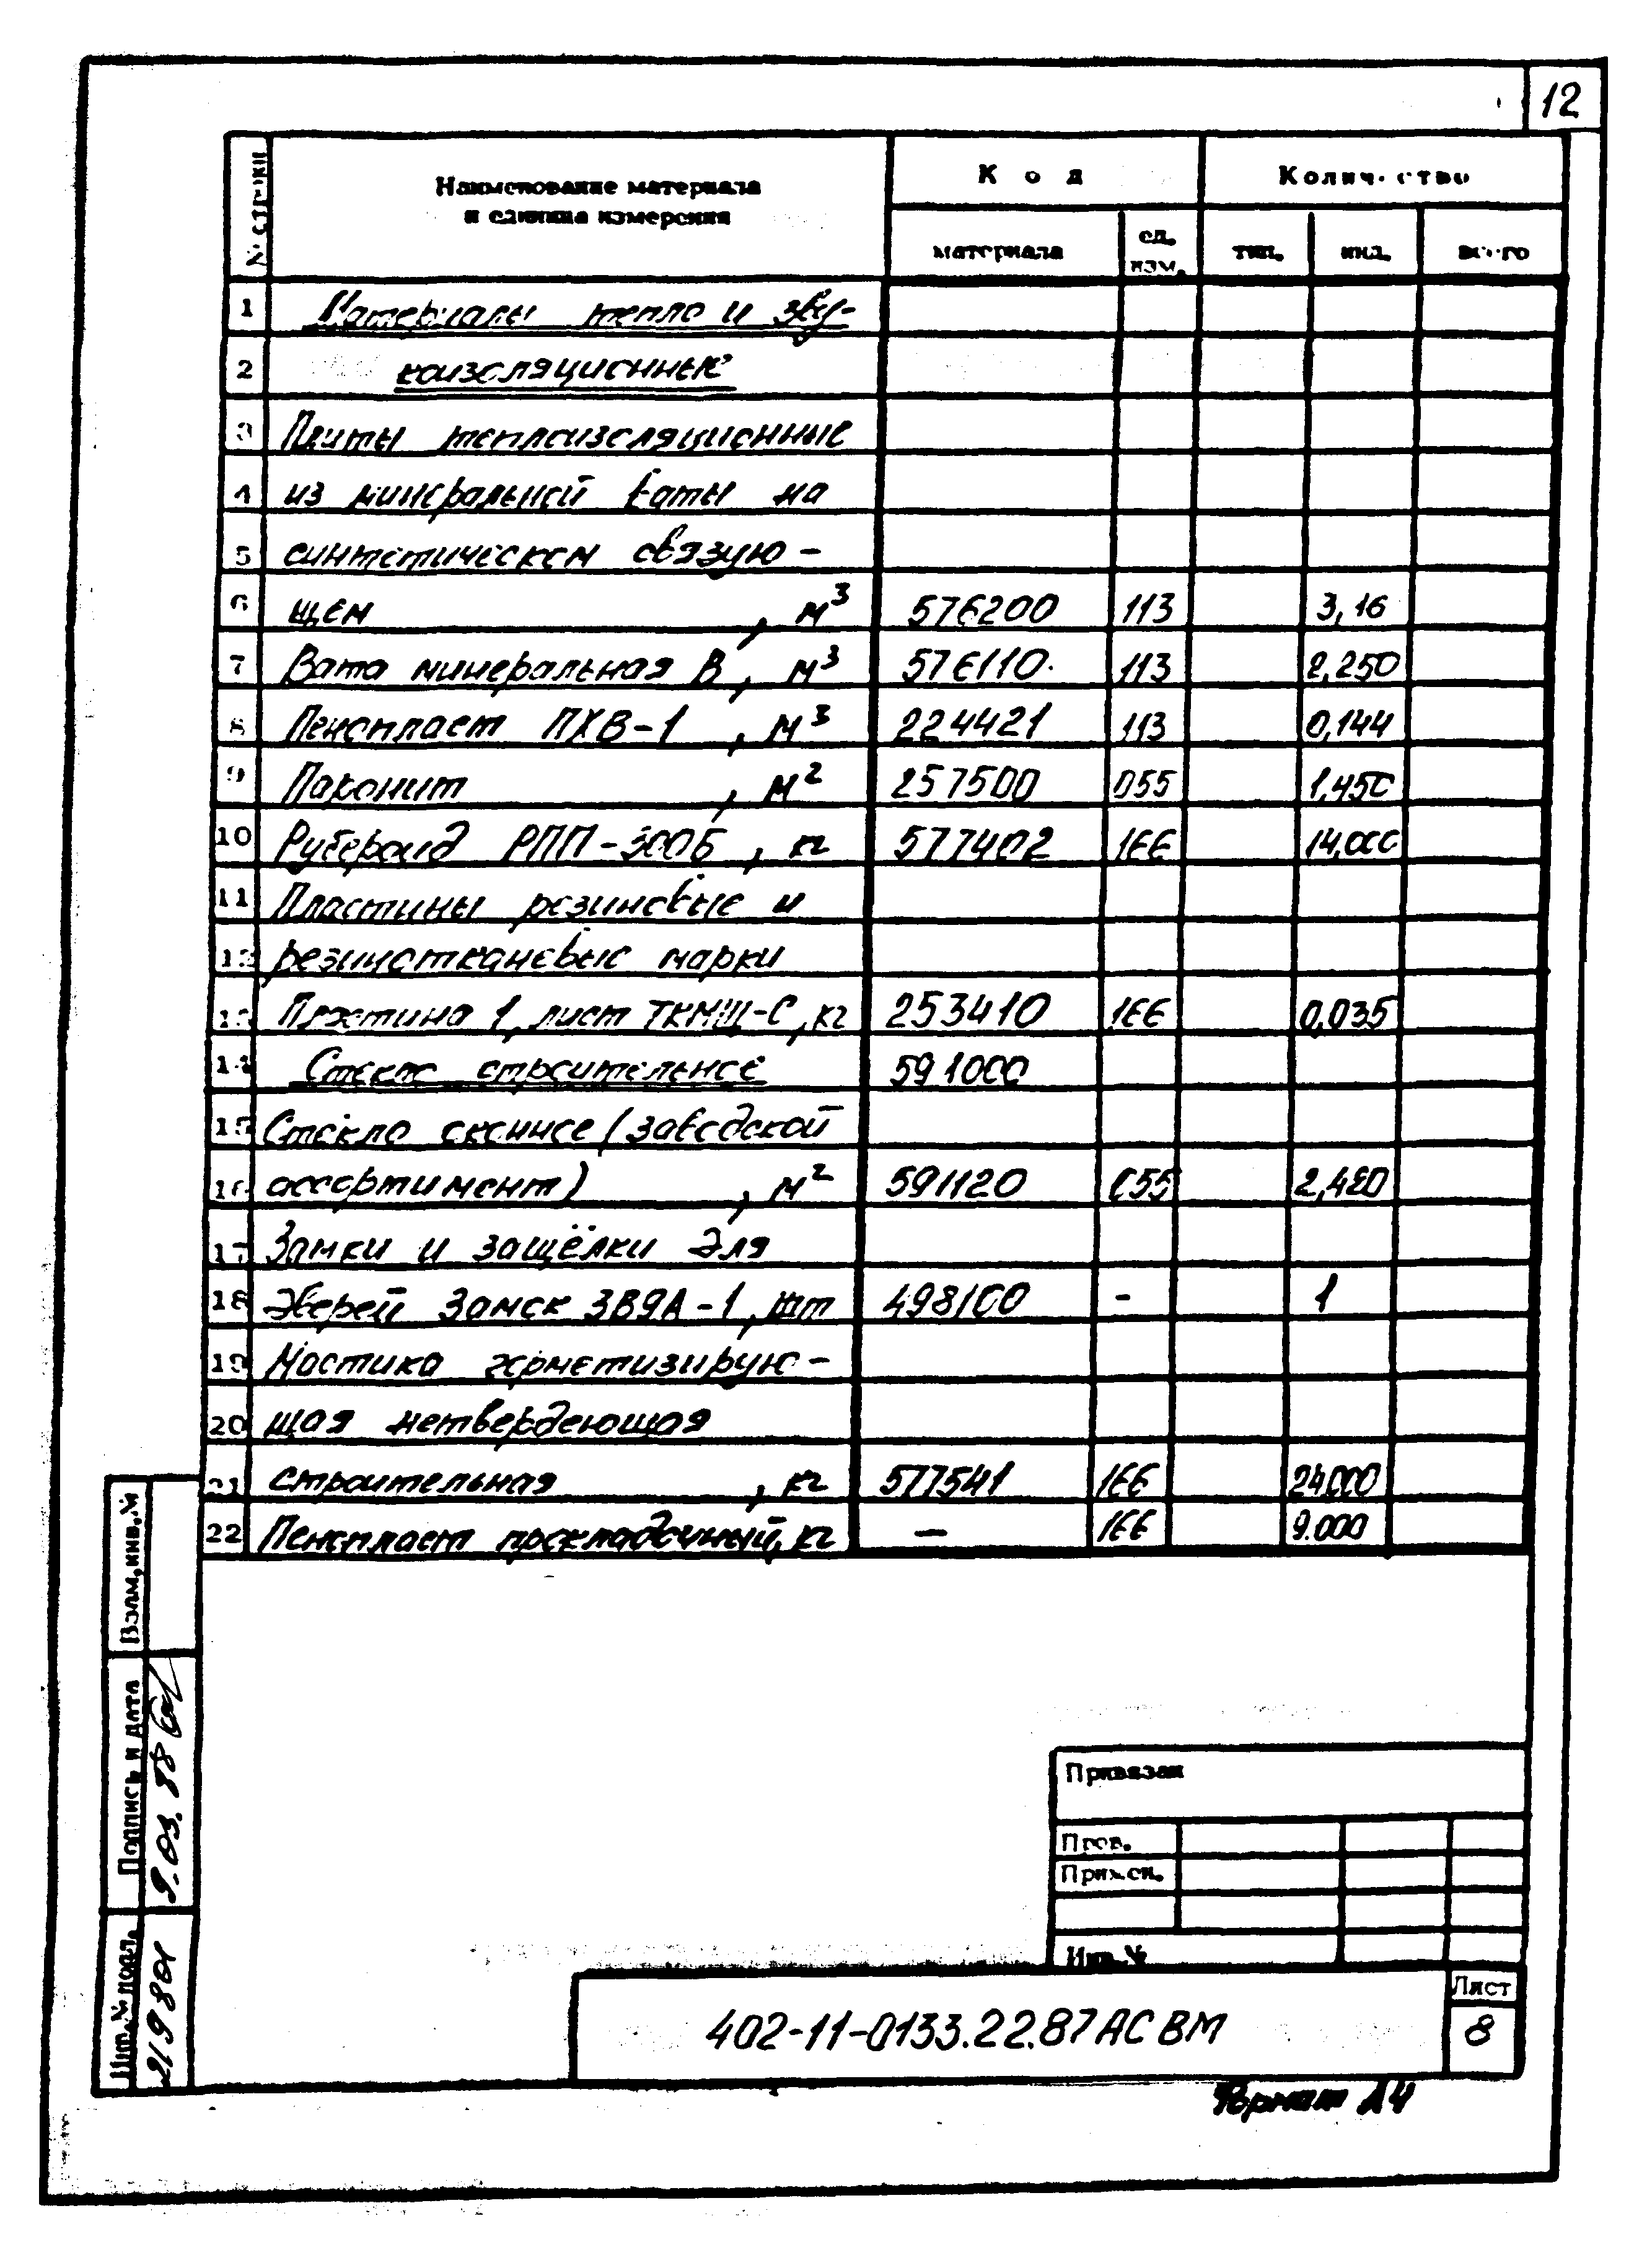 12
№ строки | Наименование материала и единица измерения | Код | Количество
материала | ед. изм. | тип. | инд. | всего
1 Материалы тепло и зву-
2 коизоляционные
3 Плиты теплоизоляционные
4 из минеральной ваты на
5 синтетическом связую-
6 щем , м³ 576200 113 3,16
7 Вата минеральная В, м³ 576110 113 2,250
8 Пенопласт ПХВ-1 , м³ 224421 113 0,144
9 Паронит , м² 257500 055 1,450
10 Рубероид РПП-300Б , кг 577402 166 14,000
11 Пластины резиновые и
12 резинотканевые марки
13 Пластина 1, лист ТКМЩ-С, кг 253410 166 0,035
14 Стекло строительное 591000
15 Стекло оконное (заводской
16 ассортимент) , м² 591120 055 2,480
17 Замки и защёлки для
18 дверей Замок ЗВ9А-1, шт 498100 - 1
19 Мастика герметизирую-
20 щая нетвердеющая
21 строительная , кг 577541 166 24,000
22 Пенопласт прокладочный, кг - 166 9.000
Взам. инв. №
Подпись и дата 9.03.88
Инв. № подл.
Привязан
Пров.
Инв. №
402-11-0133.22.87 АС ВМ
Лист
8
Формат А4